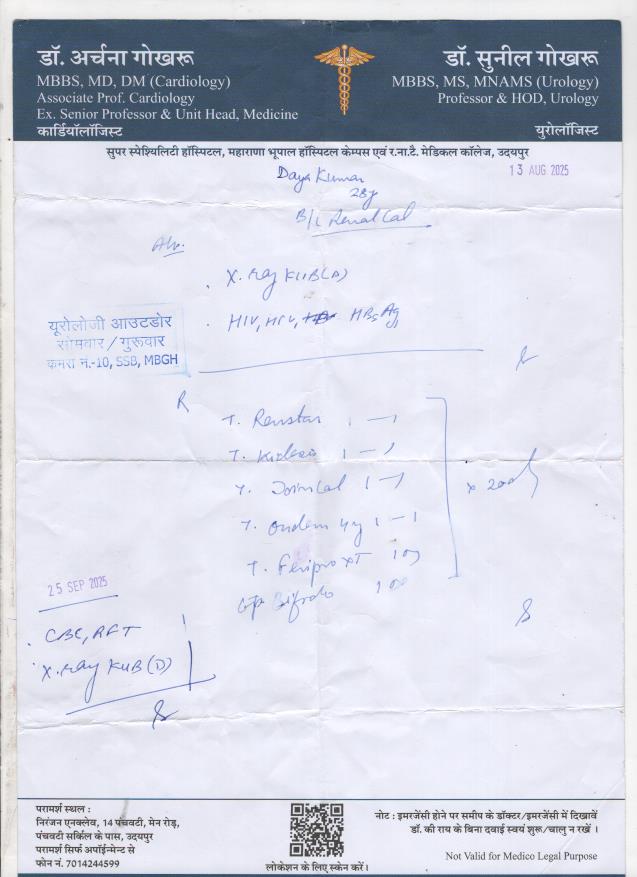 डॉ. अर्चना गोखरू
MBBS, MD, DM (Cardiology)
Associate Prof. Cardiology
Ex. Senior Professor & Unit Head, Medicine
कार्डियोलॉजिस्ट
डॉ. सुनील गोखरू
MBBS, MS, MNAMS (Urology)
Professor & HOD, Urology
युरोलॉजिस्ट
सुपर स्पेश्यिलिटी हॉस्पिटल, महाराणा भूपाल हॉस्पिटल केम्पस एवं र.ना.टै. मेडिकल कॉलेज, उदयपुर
Daya Kumar
28y
13 AUG 2025
B/L Renal Cal
X.ray KUB (D)
HIV, HCV, HBsAg
यूरोलोजी आउटडोर
सोमवार / गुरूवार
कमरा नं.-10, SSB, MBGH
R
T. Renstar 1 - 1
T. 1 - 1
T. 1 - 1
T. Ondem 4g 1 - 1
T. XT 1 OD
1 OD
x 20 d
25 SEP 2025
CBC, RFT
X.ray KUB (D)
परामर्श स्थल :
निरंजन एनक्लेव, 14 पंचवटी, मेन रोड़,
पंचवटी सर्किल के पास, उदयपुर
परामर्श सिर्फ अपॉईन्मेन्ट से
फोन नं. 7014244599
लोकेशन के लिए स्केन करें।
नोट : इमरजेंसी होने पर समीप के डॉक्टर/इमरजेंसी में दिखावें
डॉ. की राय के बिना दवाई स्वयं शुरू/चालु न रखें ।
Not Valid for Medico Legal Purpose